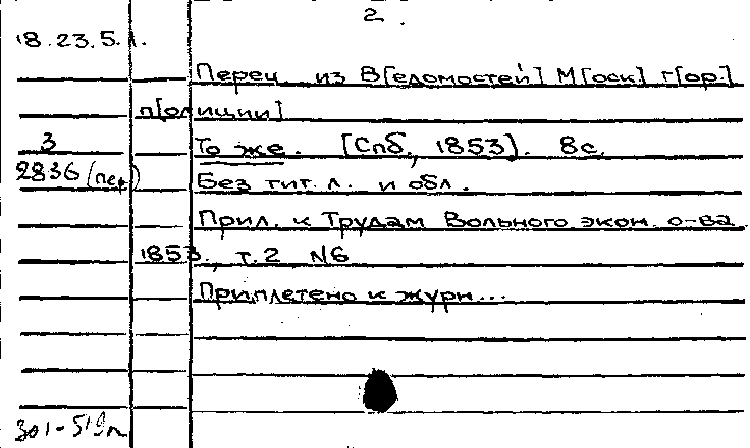 2.
18.23.5.1.
Переп. из В[едомостей] М[оск] г[ор.]
п[олиции]
3 То же. [Спб, 1853]. 8с.
2836 (пер) Без тит. л. и обл.
Прил. к Трудам Вольного экон. о-ва
1853, т.2 N6
Приплетено к журн...
301-519